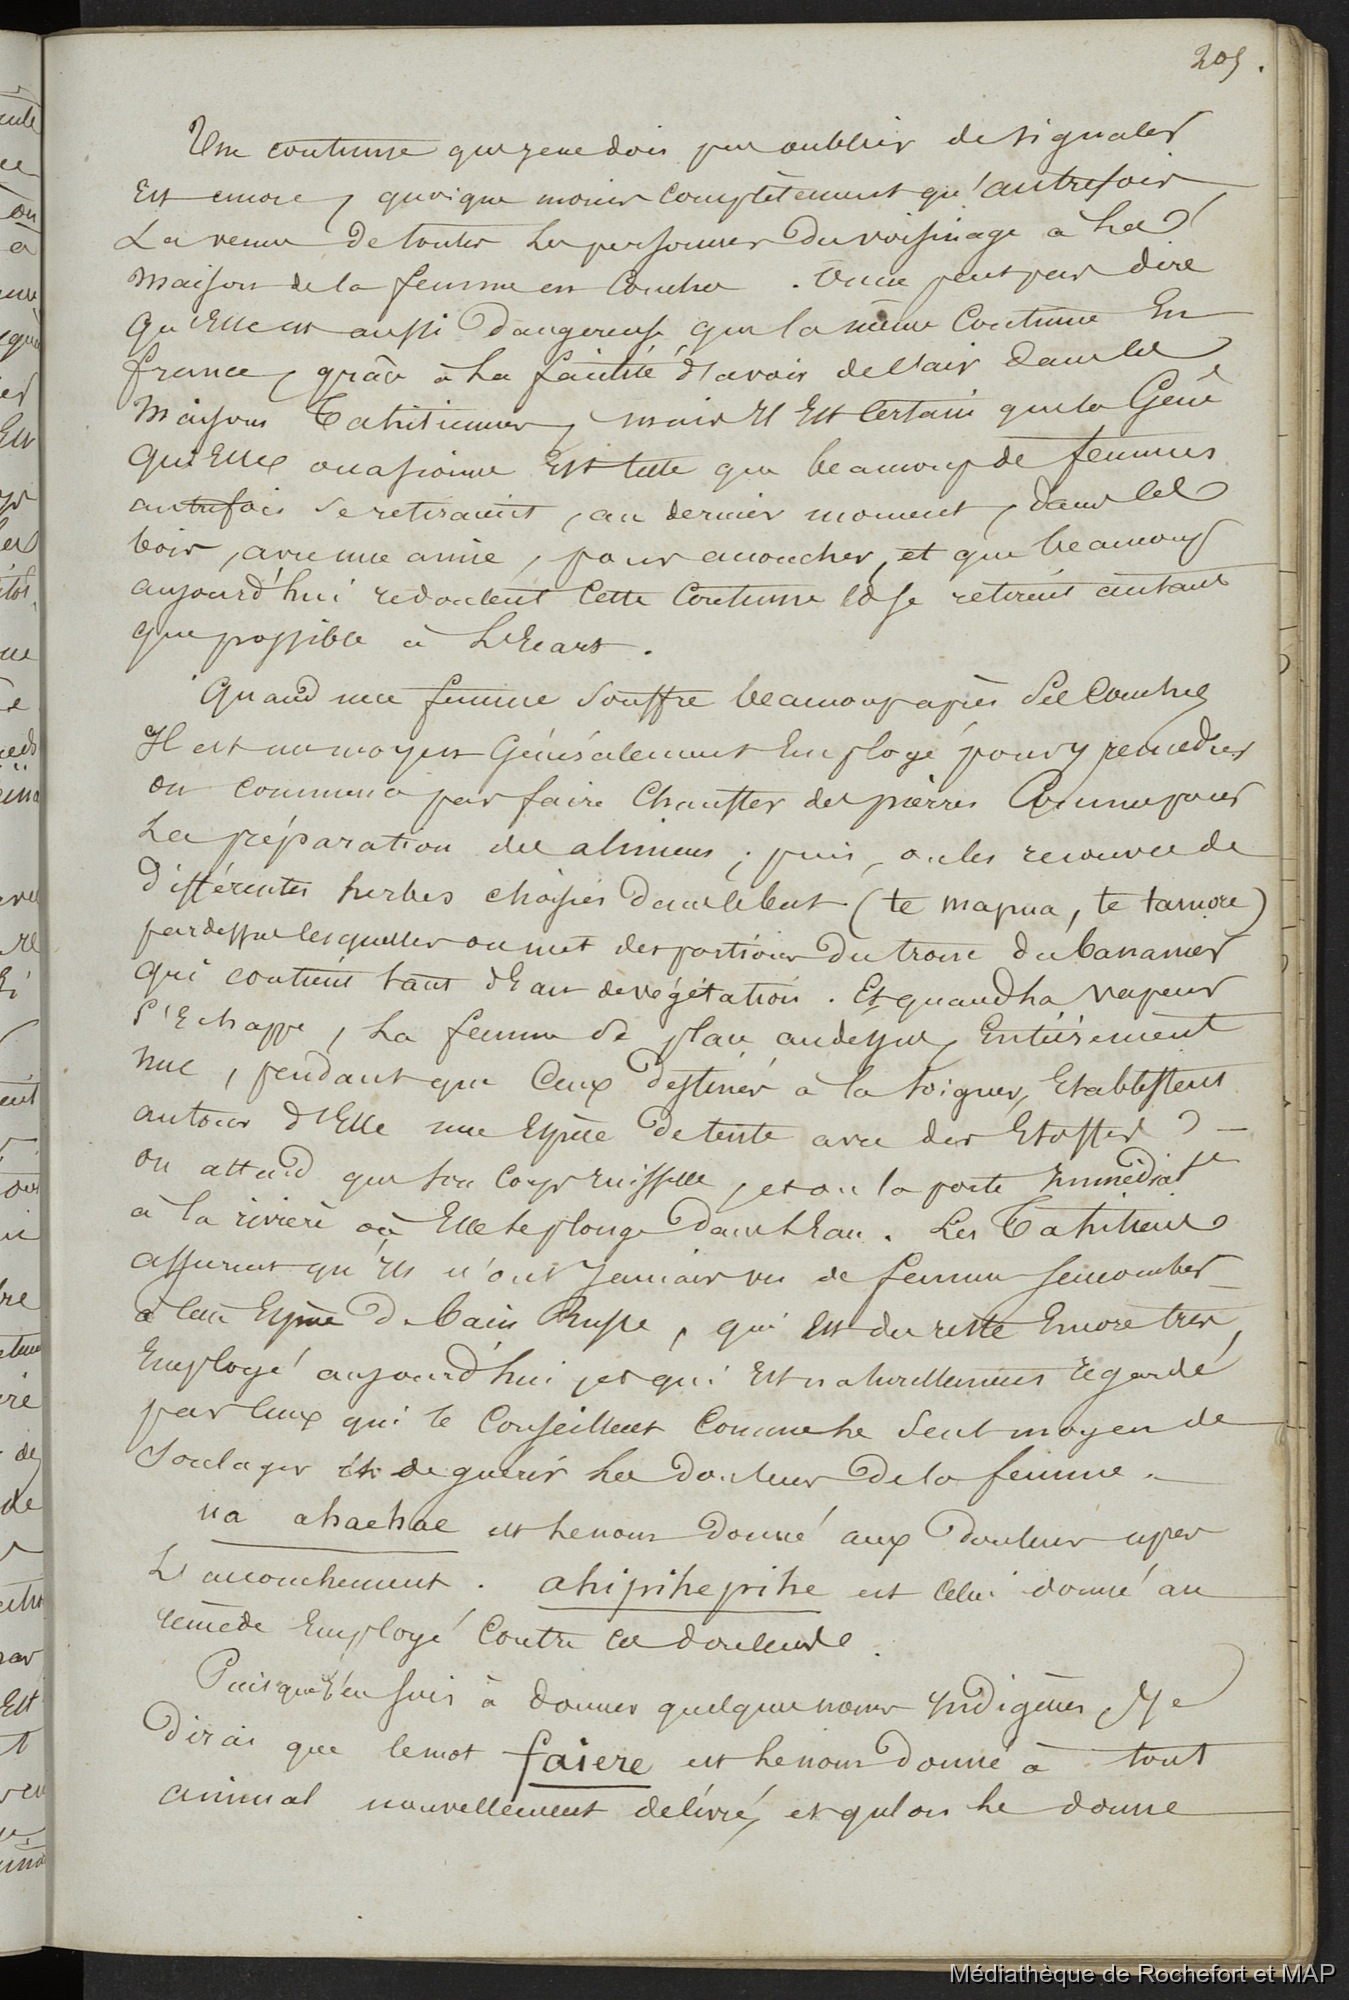 205.
Une coutume que je ne dois pas oublier de signaler
Est encore, quoique moins complètement qu'autrefois
La venue de toutes les personnes du voisinage à la
maison de la femme en couches. On ne peut pas dire
qu'Elle est aussi dangereuse que la même coutume En
france, grâce à la facilité d'avoir de l'air dans les
maisons Tahitiennes, mais il Est certain que la Gêne
qu'Elle occasionne Est telle que beaucoup de femmes
autrefois se retiraient, au dernier moment, dans les
bois, avec une amie, pour accoucher, et que beaucoup
aujourd'hui redoutent cette coutume et se retirent autant
que possible à L'Ecart.
Quand une femme souffre beaucoup après ses couches
Il est un moyen Généralement Employé pour y remedier
on commence par faire chauffer des pierres Comme pour
La préparation des alimens; puis, on les recouvre de
différentes herbes choisies dans le but (te mapua, te tamore)
par dessus lesquelles on met des portions du tronc du bananier
qui contient tant d'Eau de végétation. Et quand la vapeur
s'Echappe, La femme se place au dessus, Entièrement
nue, pendant que Ceux destinés à la soigner, Etablissent
autour d'Elle une Espèce de tente avec des Etoffes
on attend que son corps ruisselle, et on la porte Immédiatt
à la rivière où Elle se plonge dans l'Eau. Les Tahitiens
assurent qu'ils n'ont Jamais vu de femme succomber
à cette Espèce de bain Russe, qui Est du reste Encore très
Employé aujourd'hui, et qui Est naturellement regardé
par Ceux qui le Conseillent Comme le seul moyen de
Soulager et de guérir les douleurs de la femme.
na ahaehae est le nom donné aux douleurs après
L'accouchement. ahipihepihe est celui donné au
remède Employé Contre ces douleurs.
Puisque j'en suis à donner quelques noms Indigènes, Je
dirai que le mot faiere est le nom donné à tout
animal nouvellement delivré, et qu'on le donne
Médiathèque de Rochefort et MAP